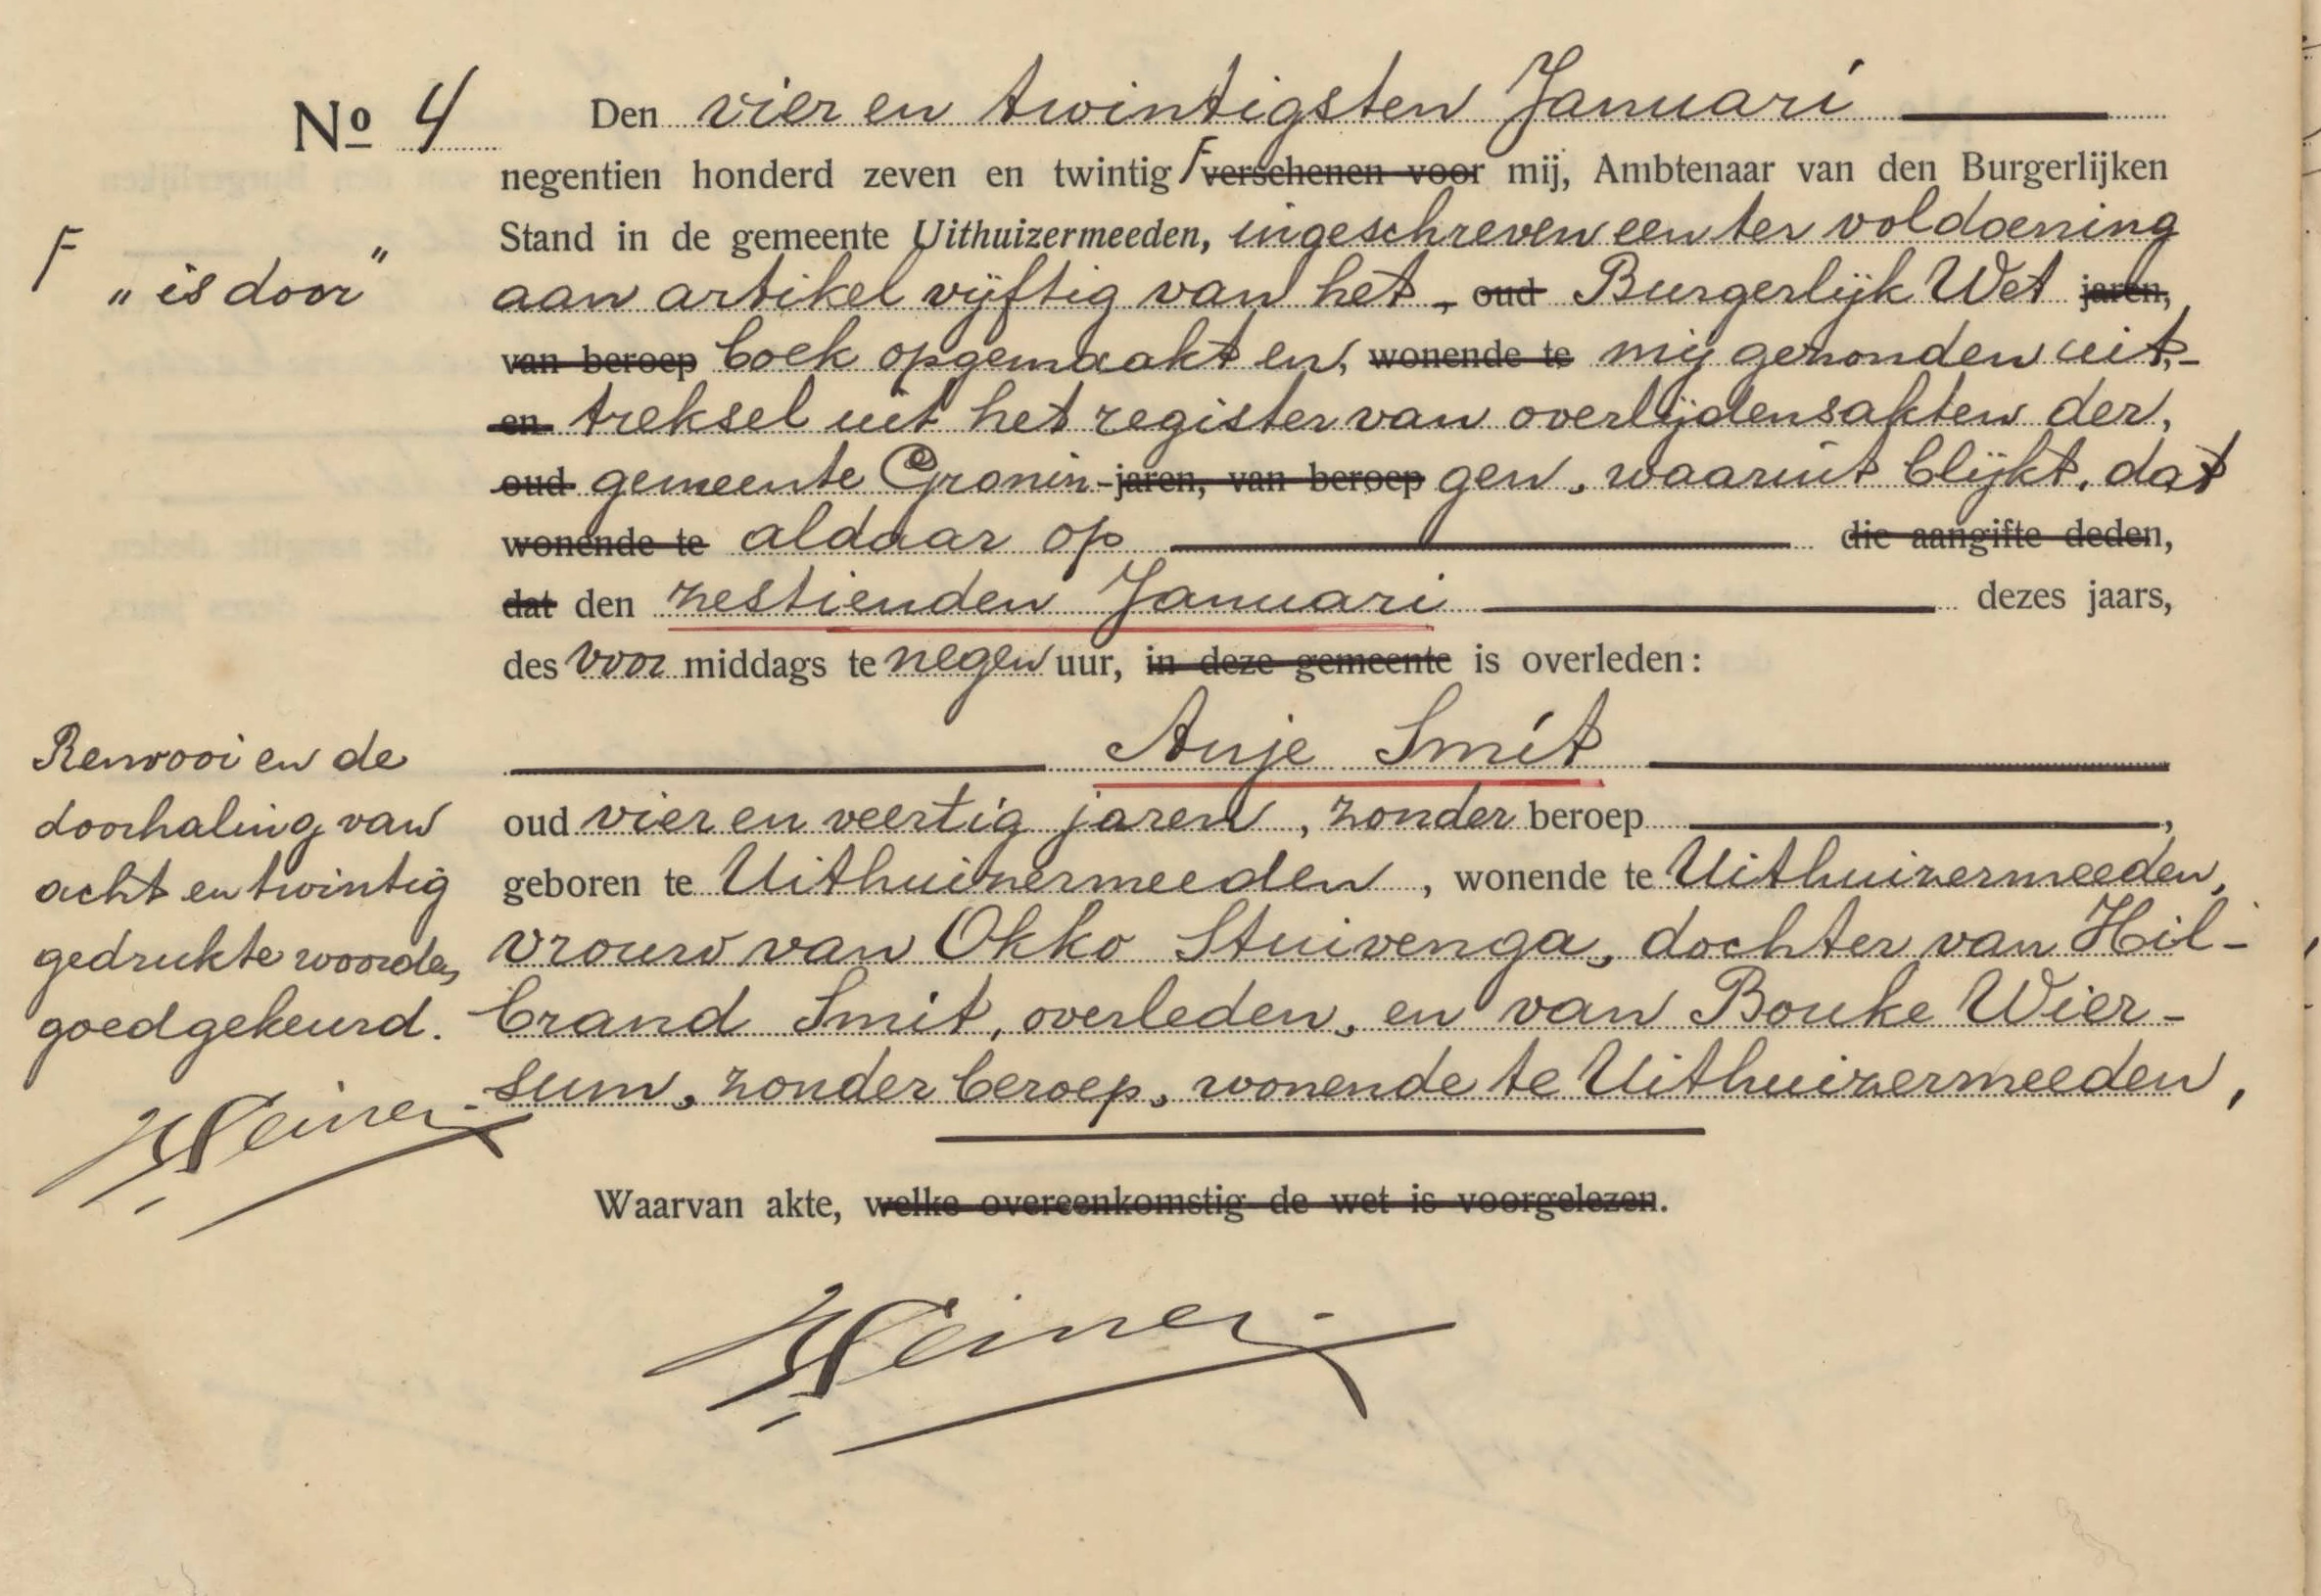 No 4 Den vier en twintigsten Januari
negentien honderd zeven en twintig F verschenen voor mij, Ambtenaar van den Burgerlijken
Stand in de gemeente Uithuizermeeden, ingeschreven een ter voldoening
F „ is door "
aan artikel vijftig van het - oud Burgerlijk Wet jaren,
van beroep boek opgemaakt en, wonende te mij gezonden uit-
en treksel uit het register van overlijdensakten der,
oud gemeente Gronin- jaren, van beroep gen, waaruit blijkt, dat
wonende te aldaar op die aangifte deden,
dat den zestienden Januari dezes jaars,
des voor middags te negen uur, in deze gemeente is overleden:
Anje Smit
oud vier en veertig jaren, zonder beroep ,
geboren te Uithuizermeeden, wonende te Uithuizermeeden,
vrouw van Okko Stuivenga, dochter van Hil-
brand Smit, overleden, en van Bouke Wier-
sum, zonder beroep, wonende te Uithuizermeeden,
Renvooi en de
doorhaling van
acht en twintig
gedrukte woorden
goedgekeurd.
Waarvan akte, welke overeenkomstig de wet is voorgelezen.